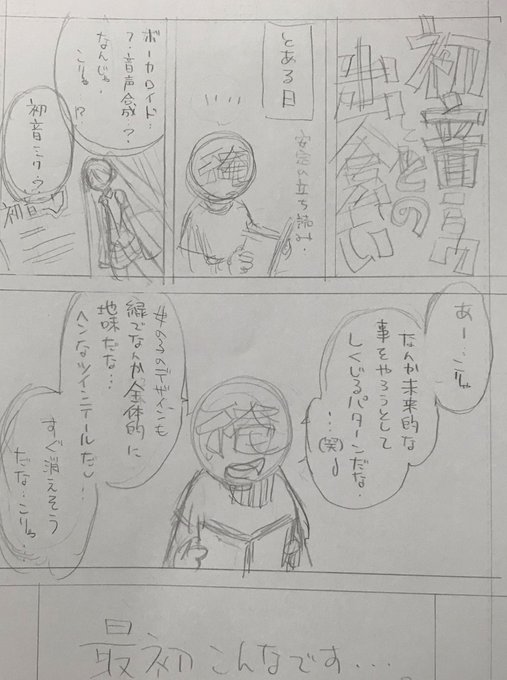 初音ミク
との
出会い
とある日
俺
安定の立ち読み。
ボーカロイド…
?音声合成…?
なんじゃ、
こりゃ…!?
初音ミク?
初音ミク
あー…こりゃ
なんか未来的な
事をやろうとして
しくじるパターンだな。
…(笑)
俺
女の子のデザインも
緑でなんか全体的に
地味だな…
ヘンなツインテールだし…
すぐ消えそう
だな…こりゃ…
最初こんなです…。